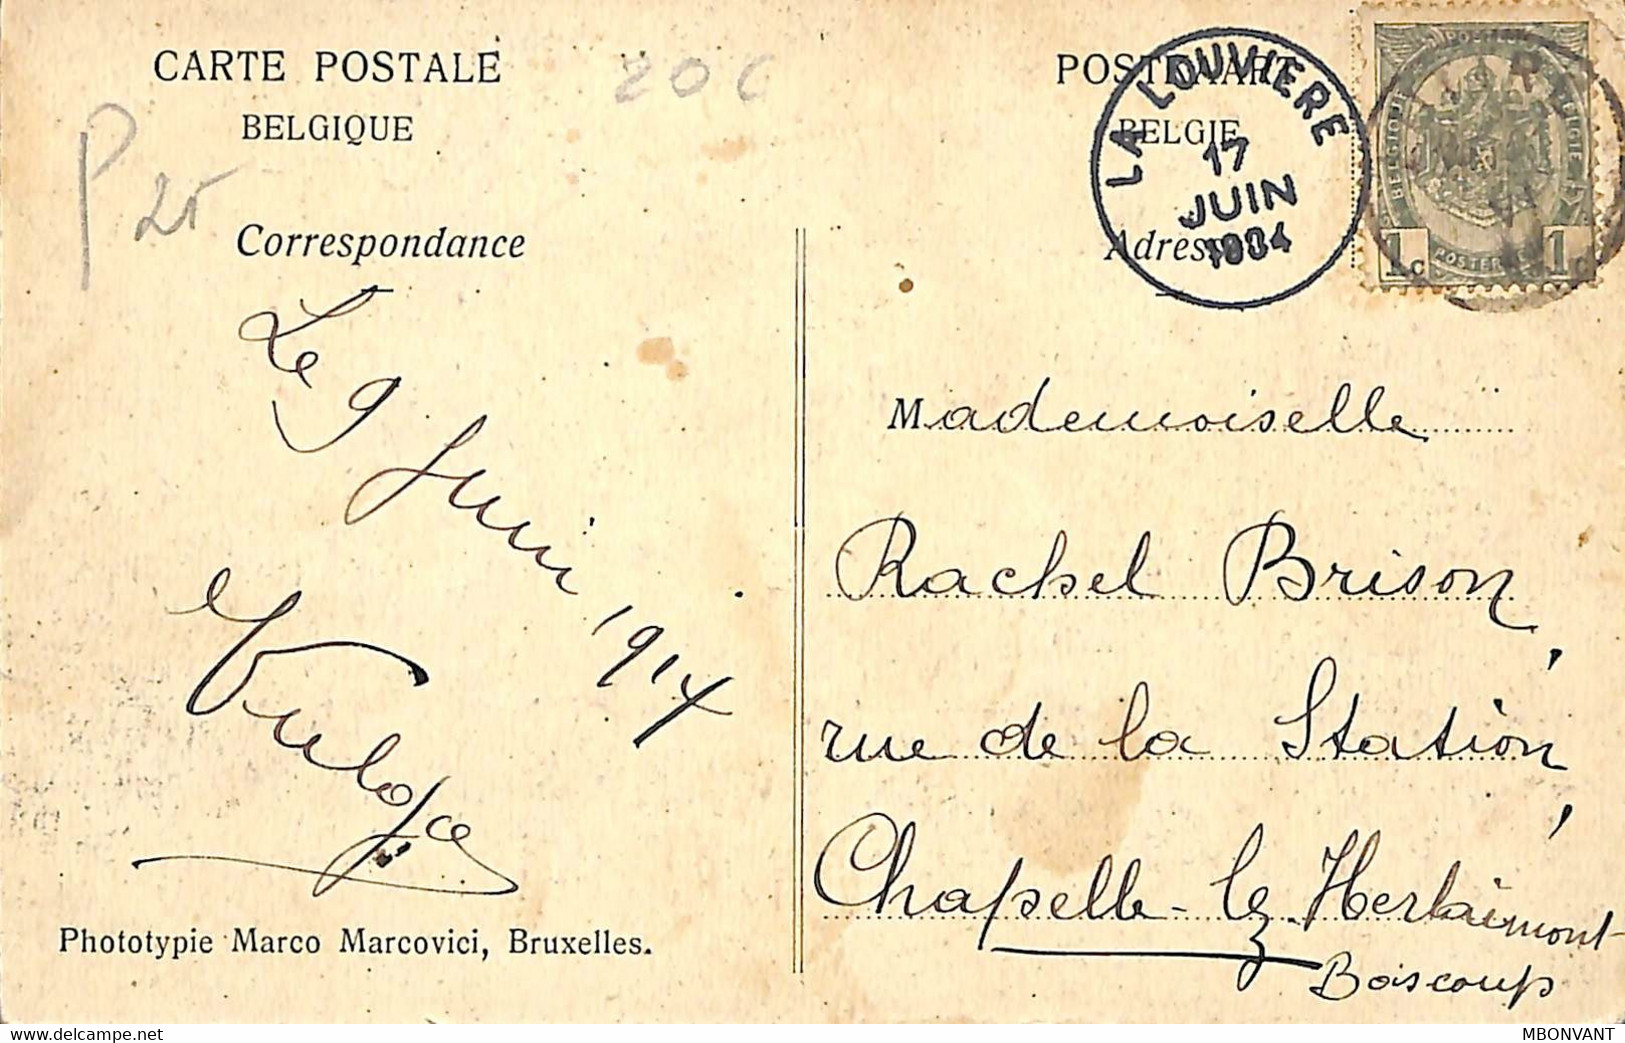 CARTE POSTALE
BELGIQUE
20 C
P 25
Correspondance
Le 9 Juin 1914
Phototypie Marco Marcovici, Bruxelles.
POSTKAART
BELGIE
Adres
LA LOUVIERE
17
JUIN
1934
BELGIQUE
BELGIE
POSTERIJEN
1c
1c
Mademoiselle
Rachel Brison,
rue de la Station,
Chapelle-lez-Herlaimont
Boiscoup
MBONVANT